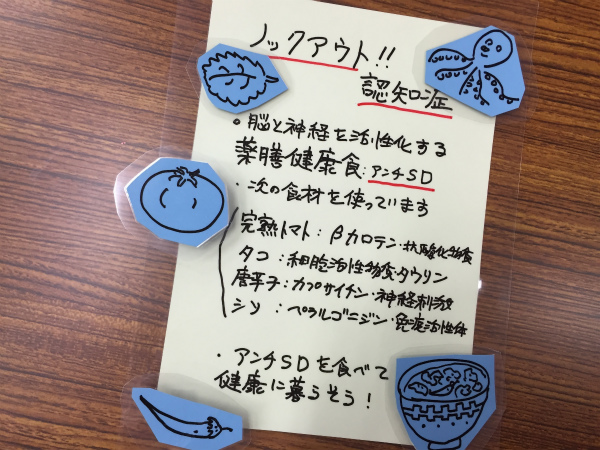 ノックアウト!!
認知症
。脳と神経を活性化する
薬膳健康食:アンチSD
・次の食材を使っています
完熟トマト:βカロテン・抗酸化効食
タコ:細胞活性効食・タウリン
唐辛子:カプサイチン・神経刺激
シソ:ペラルゴニジン・免疫活性体
・アンチSDを食べて
健康に暮らそう!